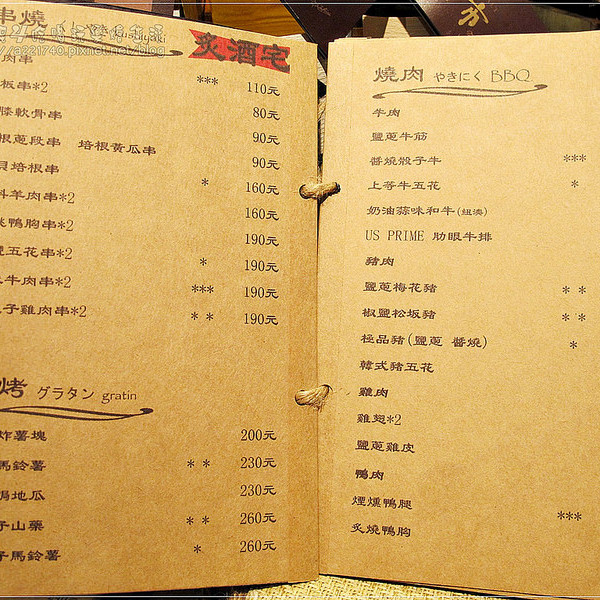 串燒
炙酒宅
http://a221740.pixnet.net/blog
肉串
板串*2 *** 110元
膝軟骨串 80元
根蔥段串 培根黃瓜串 90元
貝培根串 90元
羊肉串*2 * 160元
鴨胸串*2 160元
五花串*2 190元
牛肉串*2 * 190元
*** 190元
子雞肉串*2 * * 190元
烤 グラタン gratin
炸薯塊 200元
馬鈴薯 * * 230元
焗地瓜 230元
子山藥 * * 260元
子馬鈴薯 * 260元
燒肉 やきにく BBQ
牛肉
鹽蔥牛筋
醬燒骰子牛 ***
上等牛五花 *
奶油蒜味和牛(紐澳)
US PRIME 肋眼牛排
豬肉
鹽蔥梅花豬 * *
椒鹽松坂豬 * *
極品豬(鹽蔥 醬燒) *
韓式豬五花
雞肉
雞翅*2
鹽蔥雞皮
鴨肉
煙燻鴨腿
炙燒鴨胸 ***